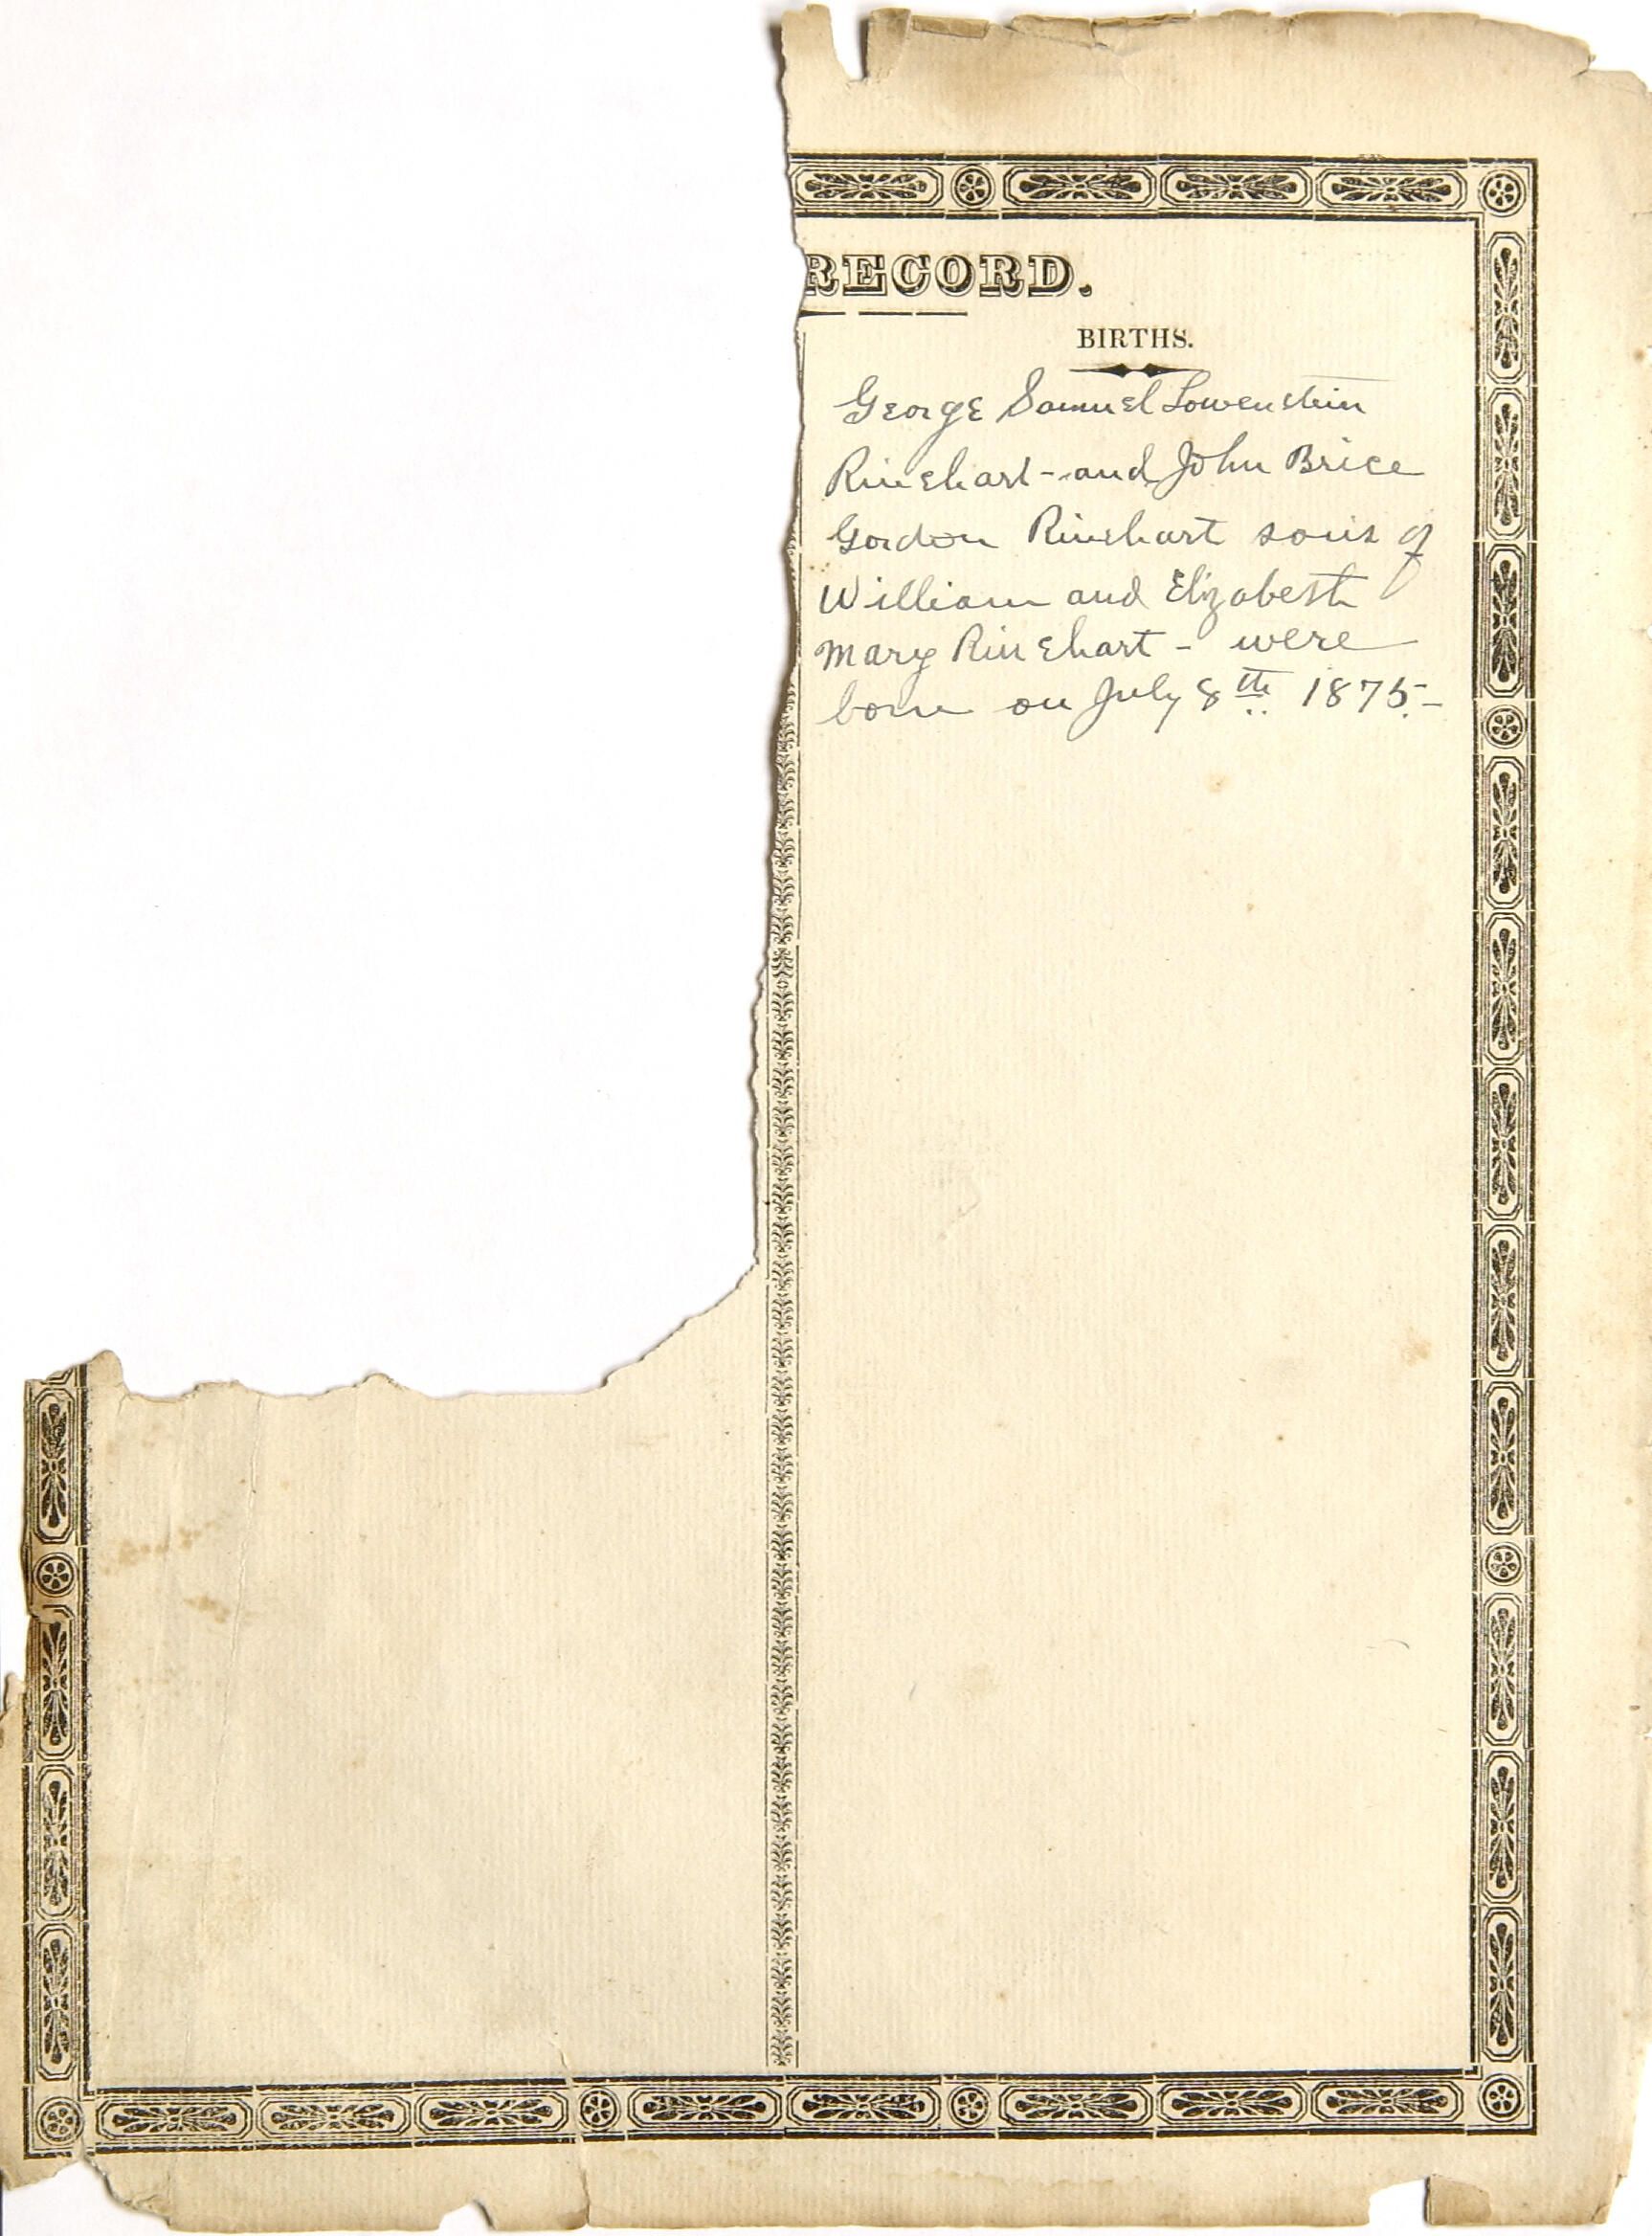 RECORD.
BIRTHS.
George Samuel Lowenstein
Rinehart - and John Brice
Gordon Rinehart sons of
William and Elizabeth
Mary Rinehart - were
born on July 8th 1875. -